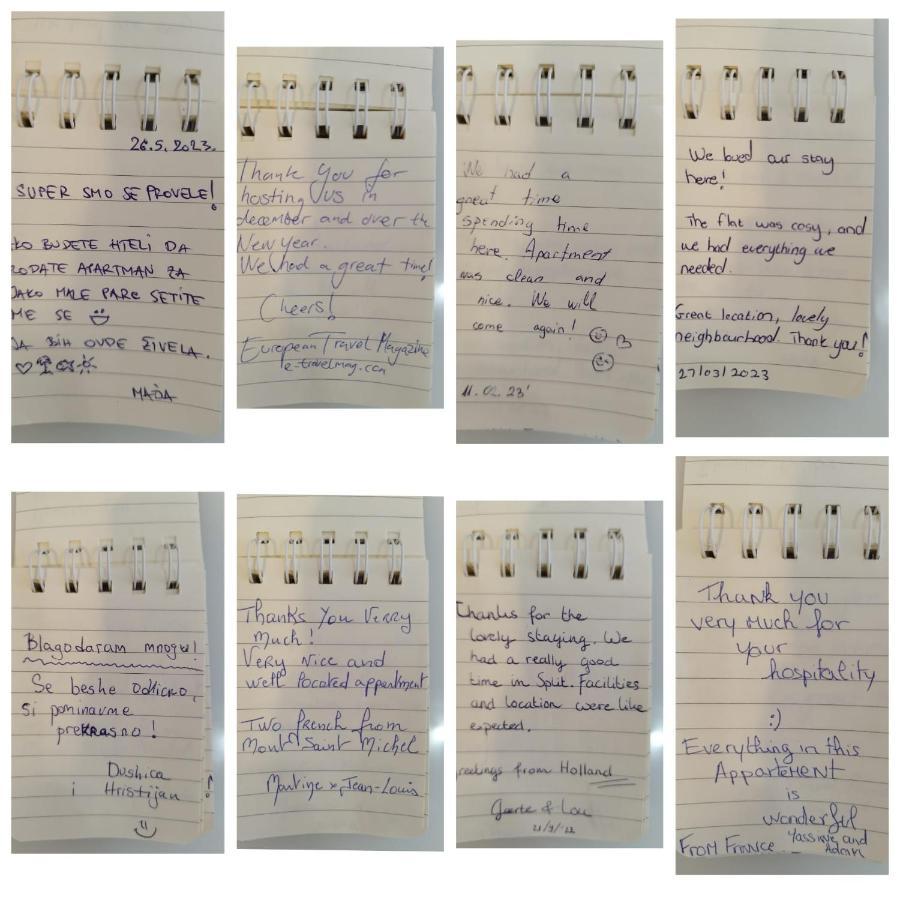 26.5.2023.
SUPER SMO SE PROVELE!
KO BUDETE HTELI DA
RODATE APARTMAN ZA
JAKO MALE PARE SETITE
ME SE
JA BIH OVDE ŽIVELA.
MAĐA
Thank You for
hosting us in
december and over the
New Year.
We had a great time!
Cheers!
European Travel Magazine
e-travelmag.com
We had a
great time
spending time
here. Apartment
was clean and
nice. We will
come again!
11.02.23'
We loved our stay
here!
The flat was cosy, and
we had everything we
needed.
Great location, lovely
neighbourhood. Thank you!
27/03/2023
Blagodaram mnogu!
Se beshe odlicno,
si pominavme
prekrasno!
Dushica
i Hristijan
Thanks You Verry
much!
Very Nice and
well located appentment
Two french from
Mont Saint Michel
Martine x Jean-Louis
Thanks for the
lovely staying. We
had a really good
time in Split. Facilities
and location were like
expected.
reetings from Holland
& Lou
Thank you
very much for
your
hospitality
:)
Everything in this
Appartement
is
wonderful
Yassine and
From France Adam